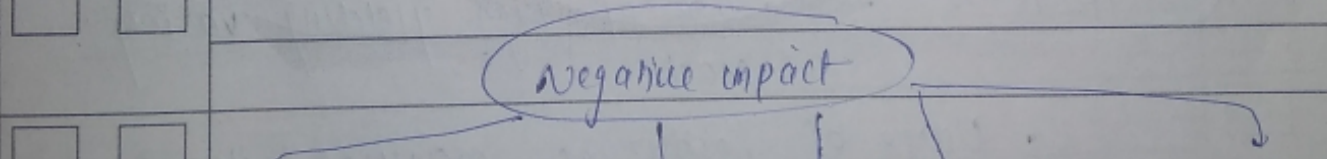 Negative impact